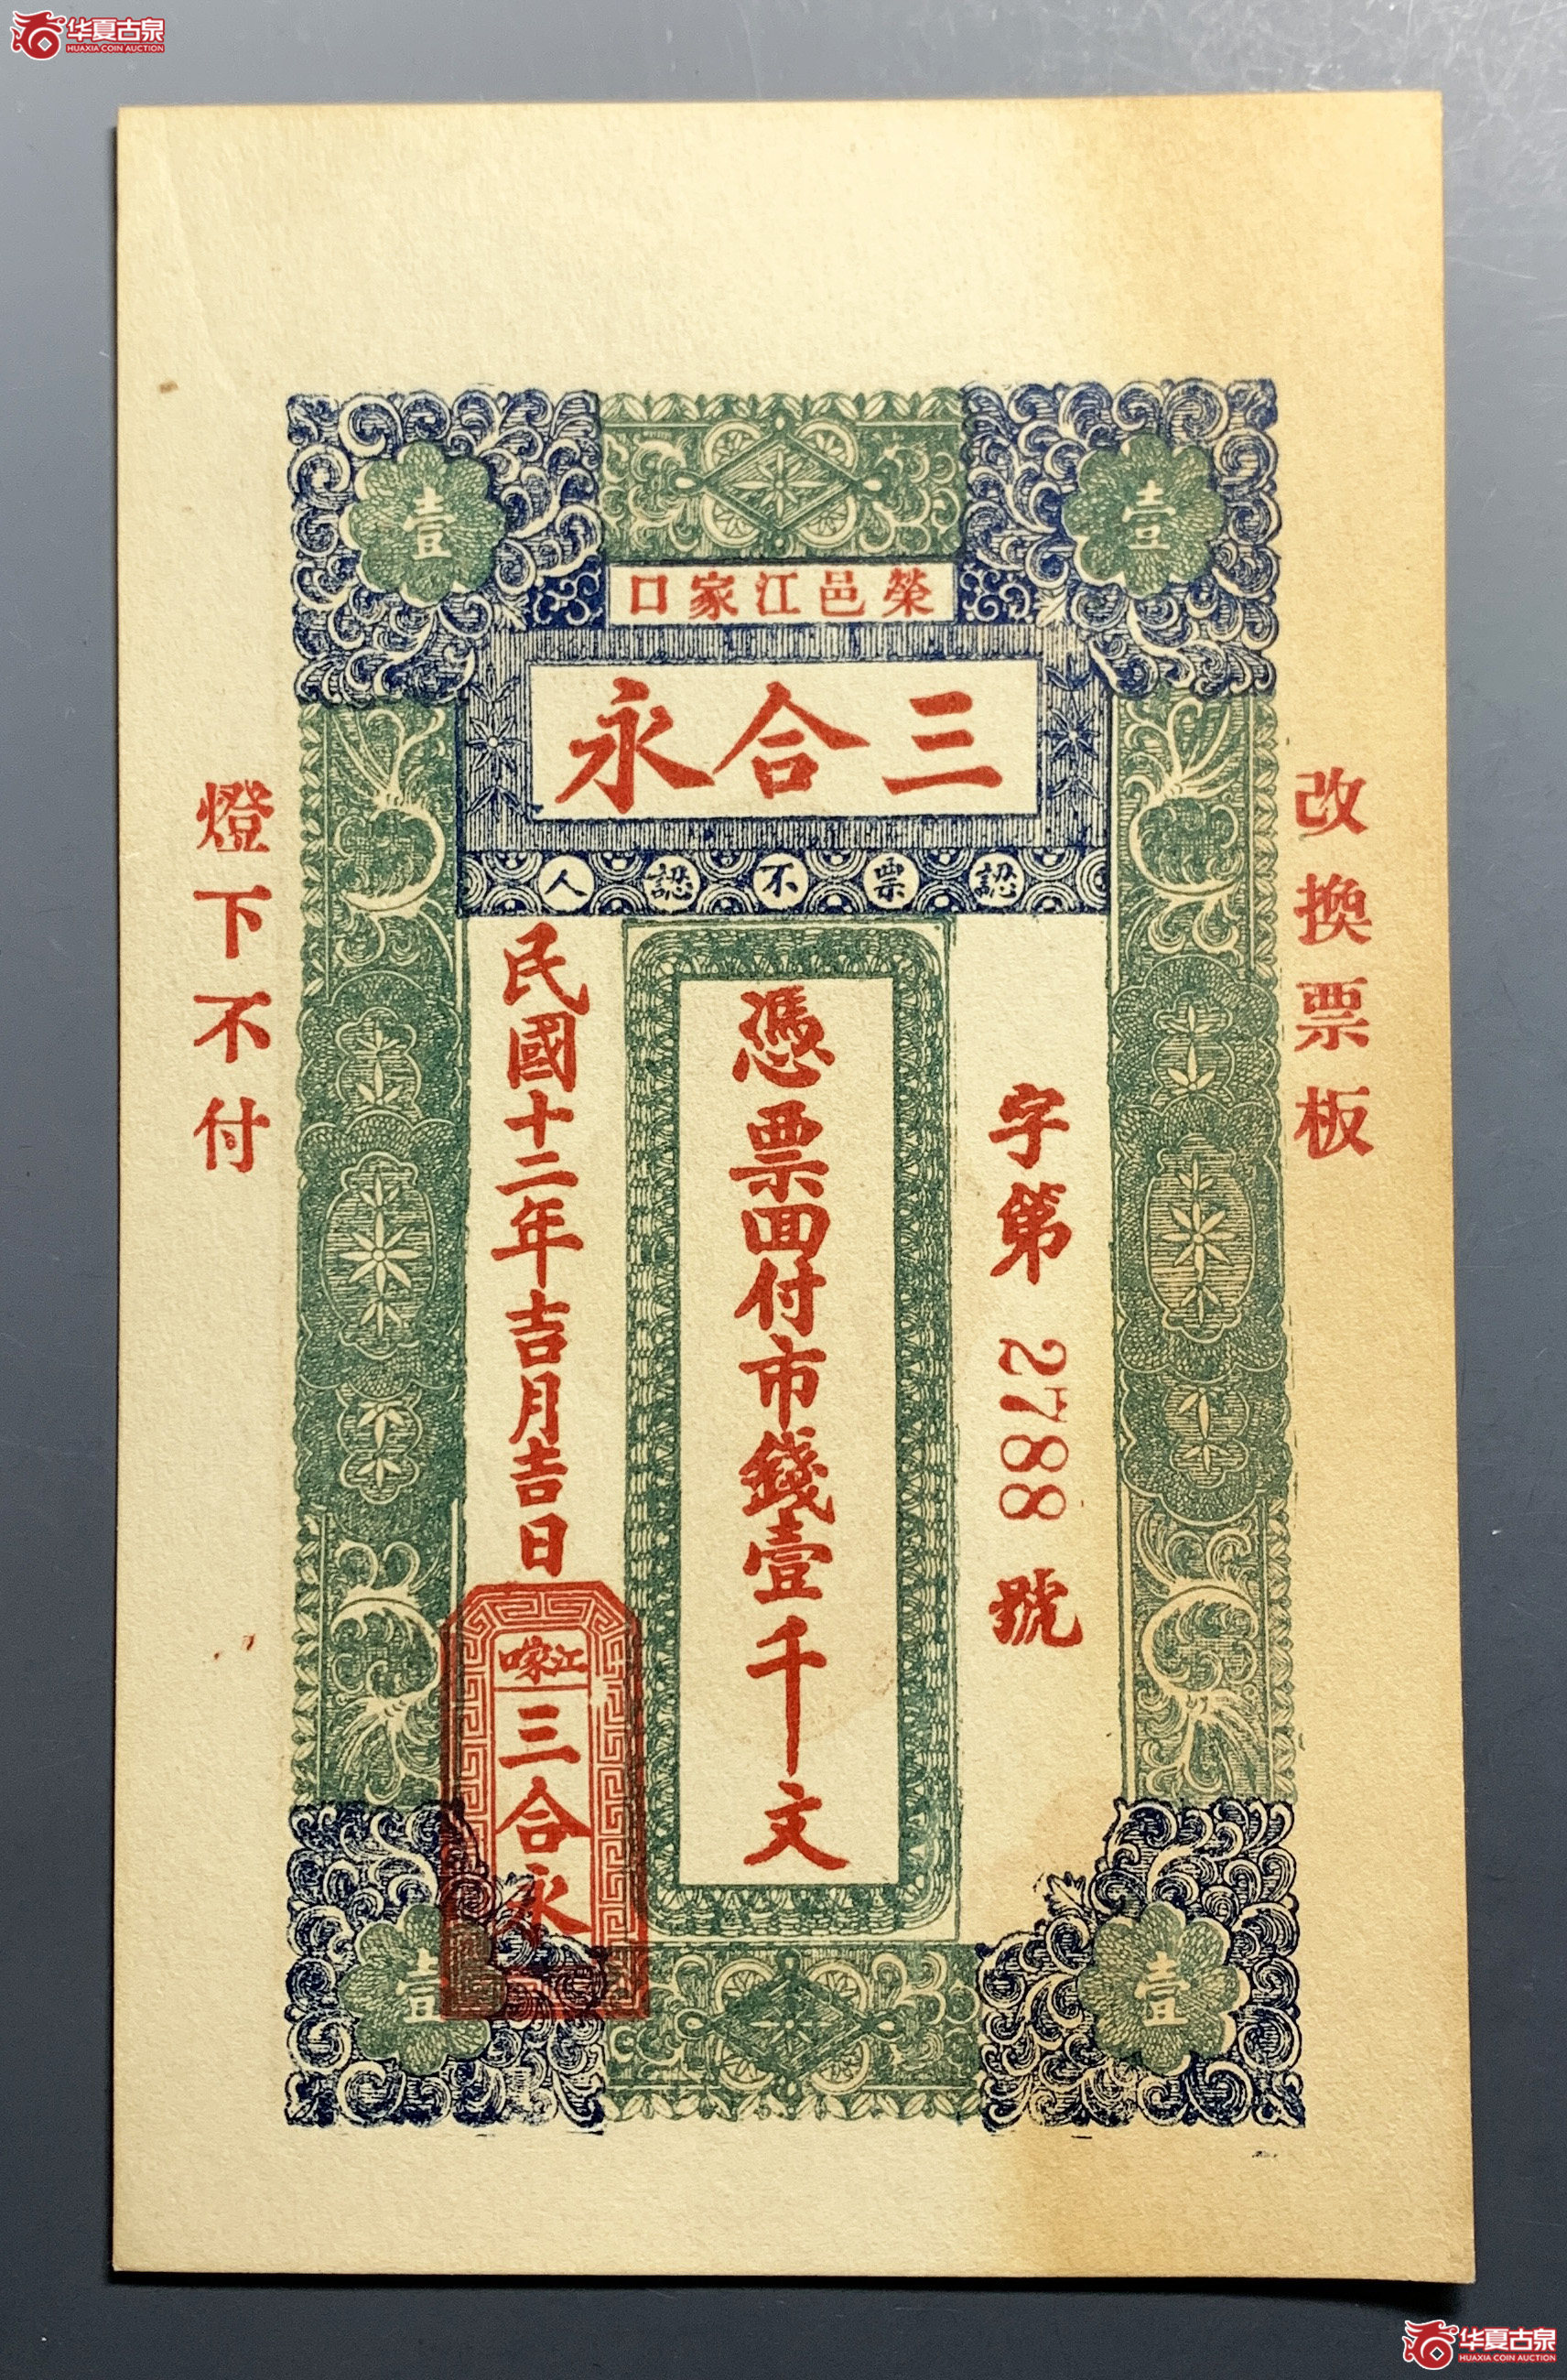 华夏古泉
HUAXIA COIN AUCTION
壹
壹
榮邑江家口
三合永
認票不認人
改換票板
字第 2788 號
憑票面付市錢壹千文
民國十二年吉月吉日
江家口
三合永
燈下不付
壹
壹
华夏古泉
HUAXIA COIN AUCTION